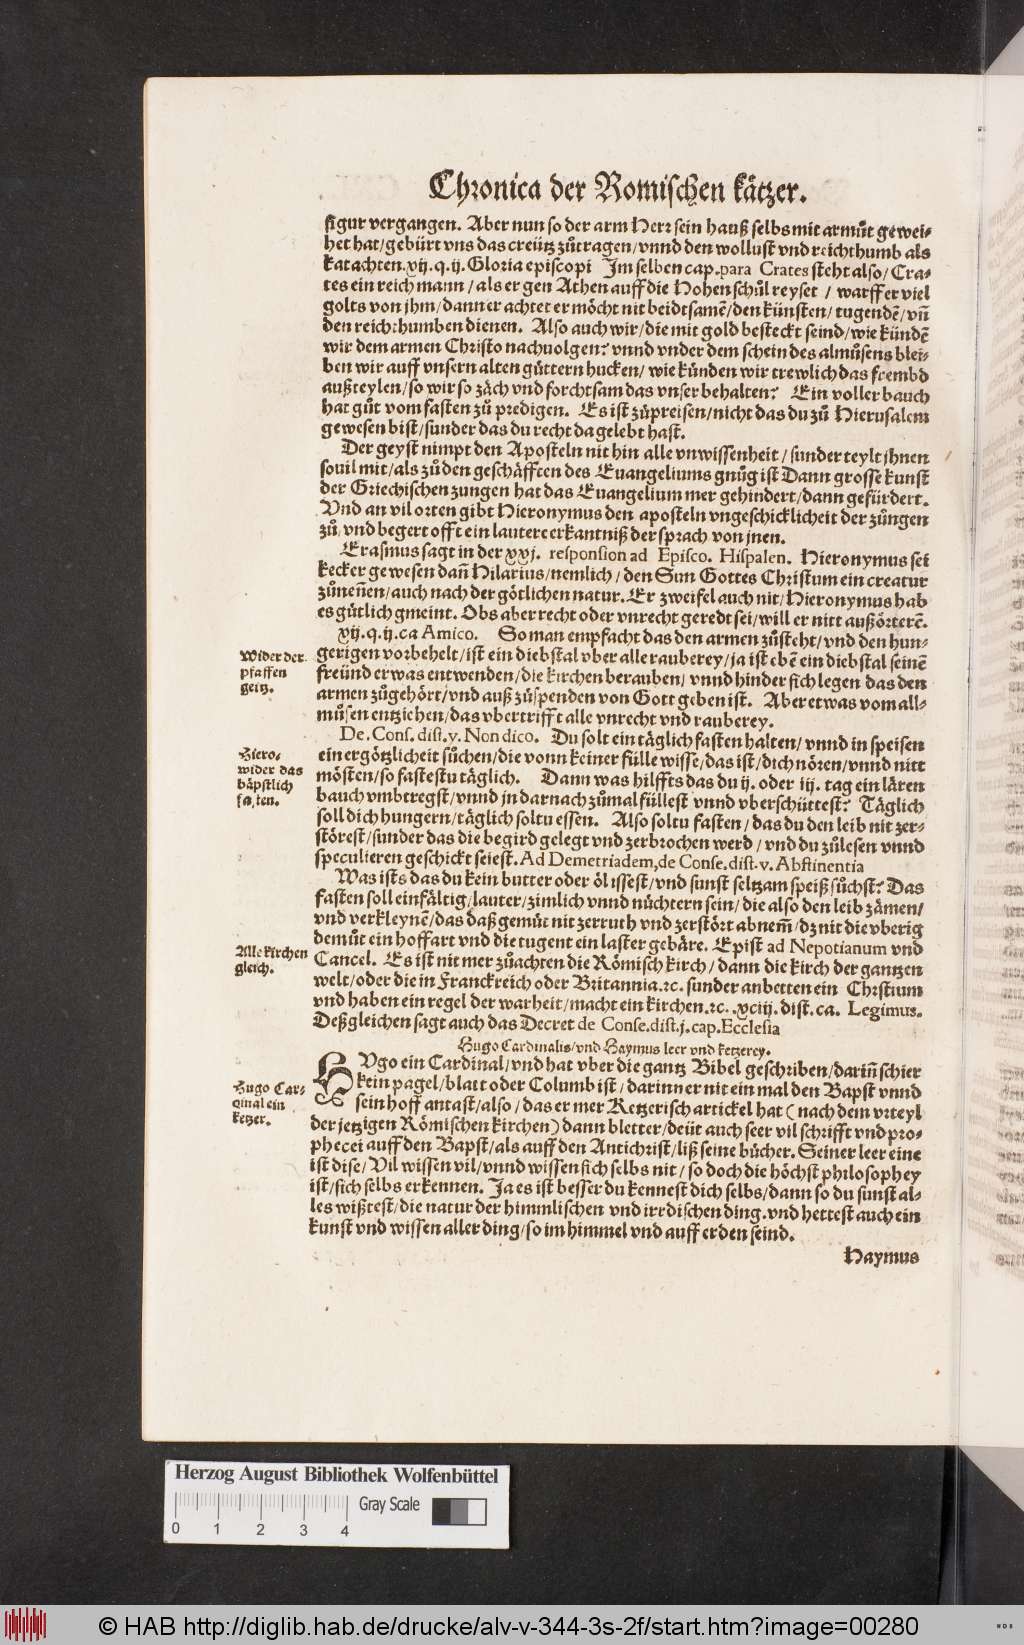 Chronica der Romischen kåtzer.
figur vergangen. Aber nun so der arm Herr sein hauß selbs mit armůt gewei-
het hat/gebürt vns das creütz zůtragen/vnnd den wollust vnd reichthumb als
kat achten.xij.q.ij.Gloria episcopi Im selben cap.para Crates steht also/Cra-
tes ein reich mann/als er gen Athen auff die Hohenschůl reyset / warff er viel
golts von jhm/dann er achtet er möcht nit beidtsamē/den künsten/tugendē/vñ
den reichthumben dienen. Also auch wir/die mit gold besteckt seind/wie kündē
wir dem armen Christo nachuolgen? vnnd vnder dem schein des almůsens blei-
ben wir auff vnsern alten güttern hucken/ wie künden wir trewlich das frembd
außteylen/so wir so zäch vnd forchtsam das vnser behalten? Ein voller bauch
hat gůt vom fasten zů predigen. Es ist zůpreisen/nicht das du zů Hierusalem
gewesen bist/sunder das du recht da gelebt hast.
Der geyst nimpt den Aposteln nit hin alle vnwissenheit/sunder teylt jhnen
souil mit/als zů den geschäfften des Euangeliums gnůg ist Dann grosse kunst
der Griechischen zungen hat das Euangelium mer gehindert/dann gefürdert.
Vnd an vil orten gibt Hieronymus den aposteln vngeschicklicheit der zůngen
zů/vnd begert offt ein lauter erkantniß der sprach von jnen.
Erasmus sagt in der xxj. responsion ad Episco. Hispalen. Hieronymus sei
kecker gewesen dañ Hilarius/nemlich/den Sun Gottes Christum ein creatur
zůneñen/auch nach der götlichen natur. Er zweifel auch nit/Hieronymus hab
es gůtlich gmeint. Obs aber recht oder vnrecht geredt sei/will er nitt außörterē.
xij.q.ij.ca Amico. So man empfacht das den armen zůsteht/vnd den hun-
Wider der
pfaffen
geitz.
gerigen vorbehelt/ist ein diebstal vber alle rauberey/ja ist ebē ein diebstal seinē
freünd etwas entwenden/die kirchen berauben/ vnnd hinder sich legen das den
armen zůgehört/vnd auß zůspenden von Gott geben ist. Aber etwas vom all-
můsen entziehen/das vbertrifft alle vnrecht vnd rauberey.
De.Cons.dist.v.Non dico. Du solt ein täglich fasten halten/vnnd in speisen
Hiero-
wider das
bäpstlich
fasten.
ein ergötzlicheit sůchen/die vonn keiner fülle wisse/das ist/dich nören/vnnd nitt
mösten/so fastestu täglich. Dann was hilffts das du ij. oder iij. tag ein lären
bauch vmbtregst/vnnd jn darnach zůmal füllest vnnd vberschüttest? Täglich
soll dich hungern/täglich soltu essen. Also soltu fasten/das du den leib nit zer-
störest/sunder das die begird gelegt vnd zerbrochen werd/vnd du zůlesen vnnd
speculieren geschickt seiest. Ad Demetriadem,de Conse.dist.v.Abstinentia
Was ists das du kein butter oder öl issest/vnd sunst seltzam speiß sůchst? Das
fasten soll einfältig/lauter/zimlich vnnd nüchtern sein/die also den leib zämen/
vnd verkleynē/das daß gemůt nit zerruth vnd zerstört abnem̃/dz nit die vberig
demůt ein hoffart vnd die tugent ein laster gebäre. Epist ad Nepotianum vnd
Alle kirchen
gleich.
Cancel. Es ist nit mer zůachten die Römisch kirch/dann die kirch der gantzen
welt/oder die in Franckreich oder Britannia.rc. sunder anbetten ein Chrstium
vnd haben ein regel der warheit/macht ein kirchen.rc..xciij.dist.ca. Legimus.
Deßgleichen sagt auch das Decret de Conse.dist.j.cap.Ecclesia
Hugo Cardinalis/vnd Haymus leer vnd ketzerey.
HVgo ein Cardinal/vnd hat vber die gantz Bibel geschriben/dariñ schier
Hugo Car-
dinal ein
ketzer.
kein pagel/blatt oder Columb ist/darinn er nit ein mal den Bapst vnnd
sein hoff antast/also/das er mer Ketzerisch artickel hat (nach dem vrteyl
der jetzigen Römischen kirchen) dann bletter/deüt auch seer vil schrifft vnd pro-
phecei auff den Bapst/als auff den Antichrist/liß seine bücher. Seiner leer eine
ist dise/Vil wissen vil/vnnd wissen sich selbs nit/so doch die höchst philosophey
ist/sich selbs erkennen. Ja es ist besser du kennest dich selbs/dann so du sunst al-
les wißtest/die natur der himmlischen vnd irrdischen ding.vnd hettest auch ein
kunst vnd wissen aller ding/so im himmel vnd auff erden seind.
Haymus
Herzog August Bibliothek Wolfenbüttel
Gray Scale
0 1 2 3 4
© HAB http://diglib.hab.de/drucke/alv-v-344-3s-2f/start.htm?image=00280